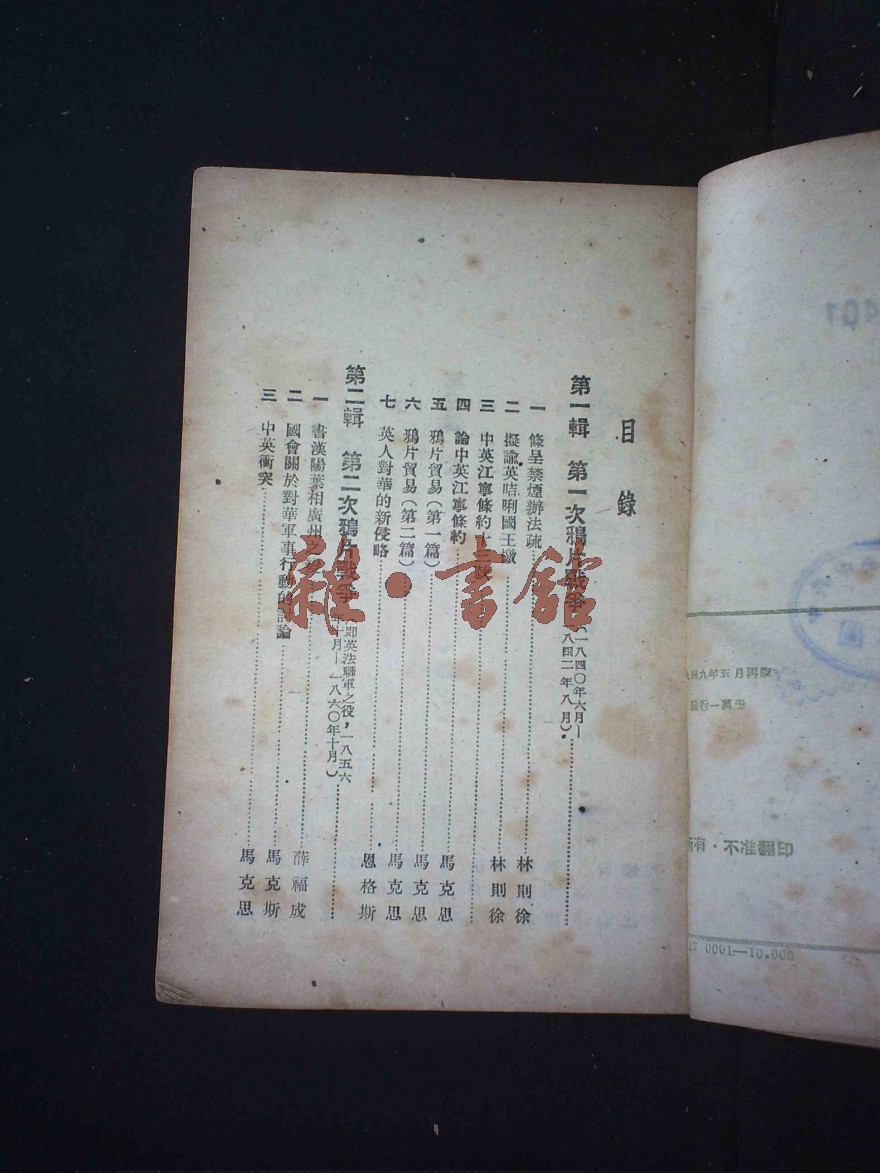 目錄
第一輯 第一次鴉片戰爭(一八四〇年六月—一八四二年八月)
一 條呈禁煙辦法疏 林則徐
二 擬諭英咭唎國王檄 林則徐
三 中英江寧條約十三款
四 論中英江寧條約 馬克思
五 鴉片貿易(第一篇) 馬克思
六 鴉片貿易(第二篇) 馬克思
七 英人對華的新侵略 恩格斯
第二輯 第二次鴉片戰爭(即英法聯軍之役,一八五六年十月—一八六〇年十月)
一 書漢陽葉相廣州之 薛福成
二 國會關於對華軍事行動的討論 馬克斯
三 中英衝突 馬克思
雜·書館
401
九四九年五月再版
發行一萬冊
所有·不准翻印
17 0001—10.000